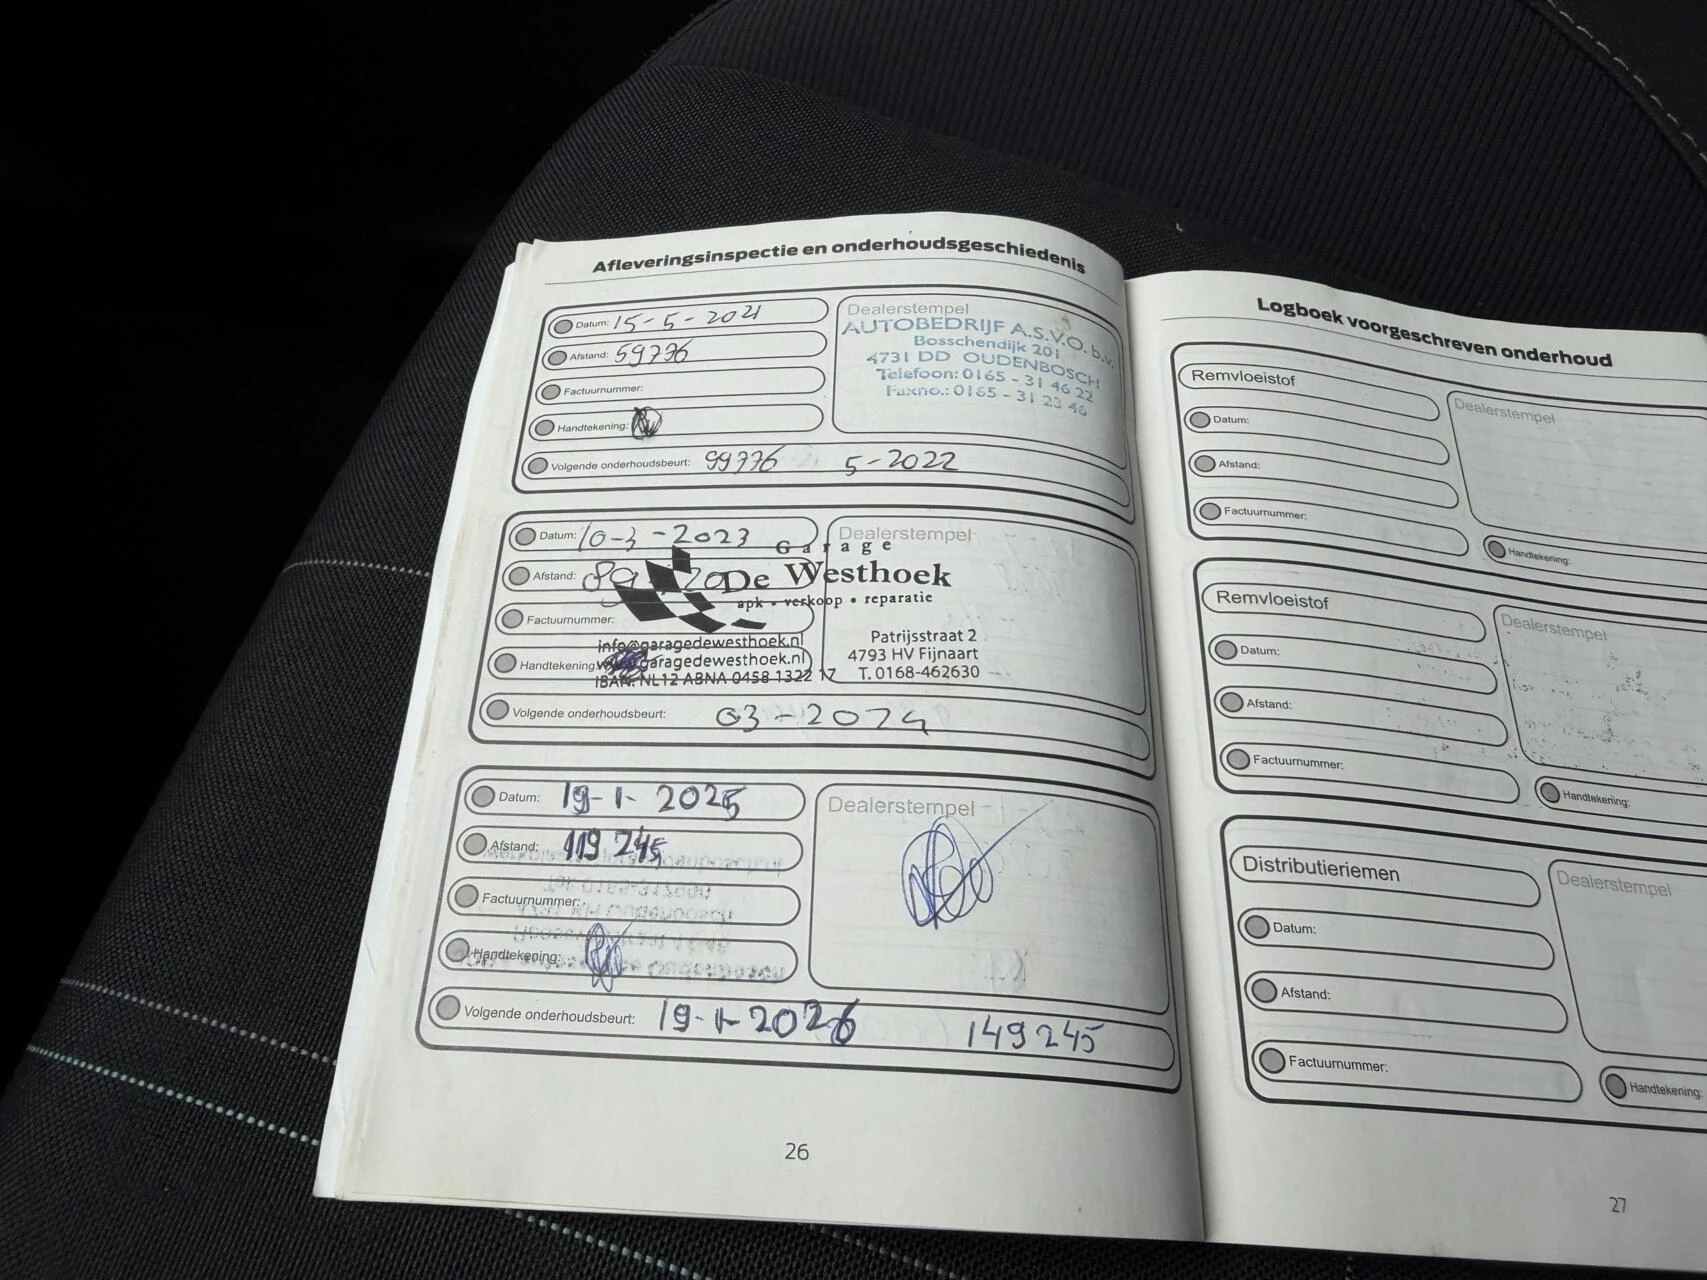 Afleveringsinspectie en onderhoudsgeschiedenis
Datum: 15-5-2021
Afstand: 59776
Factuurnummer:
Handtekening:
Volgende onderhoudsbeurt: 99776 5-2022
Dealerstempel
AUTOBEDRIJF A.S.V.O. b.v.
Bosschendijk 201
4731 DD OUDENBOSCH
Telefoon: 0165 - 31 46 22
Faxno.: 0165 - 31 23 46
Datum: 10-3-2023
Afstand:
Factuurnummer:
Handtekening:
Volgende onderhoudsbeurt: 03-2024
Dealerstempel
Garage
De Westhoek
apk • verkoop • reparatie
info@garagedewesthoek.nl
garagedewesthoek.nl
IBAN: NL12 ABNA 0458 1322 17
Patrijsstraat 2
4793 HV Fijnaart
T. 0168-462630
Datum: 19-1-2025
Afstand: 119245
Factuurnummer:
Handtekening:
Volgende onderhoudsbeurt: 19-1-2026 149245
Dealerstempel
26
Logboek voorgeschreven onderhoud
Remvloeistof
Datum:
Afstand:
Factuurnummer:
Dealerstempel
Handtekening:
Remvloeistof
Datum:
Afstand:
Factuurnummer:
Dealerstempel
Handtekening:
Distributieriemen
Datum:
Afstand:
Factuurnummer:
Dealerstempel
Handtekening:
27